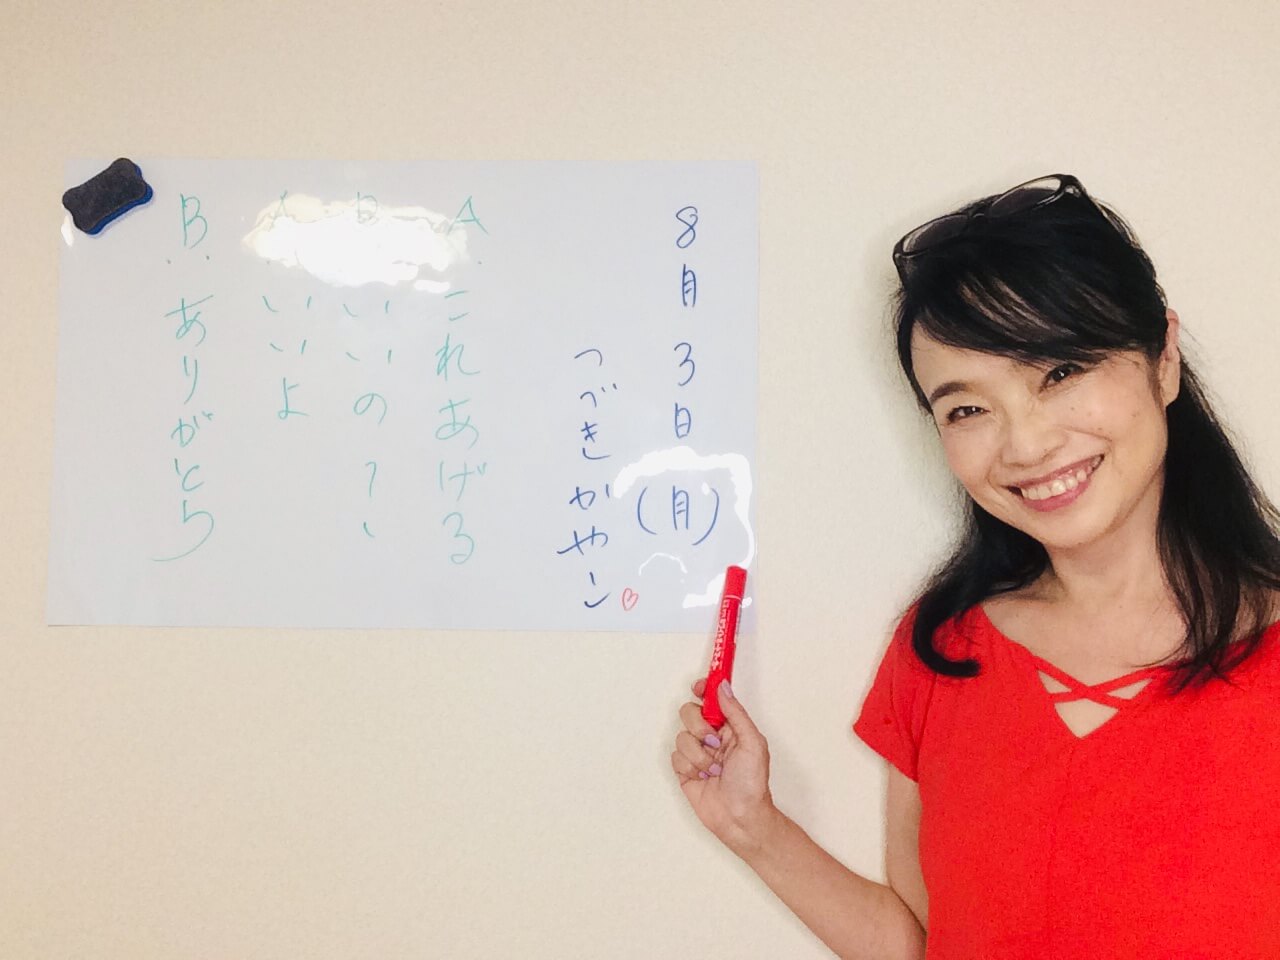 8月3日(月)
つづきかやこ
A:これあげる
B:いいの?、
A:いいよ
B:ありがとう